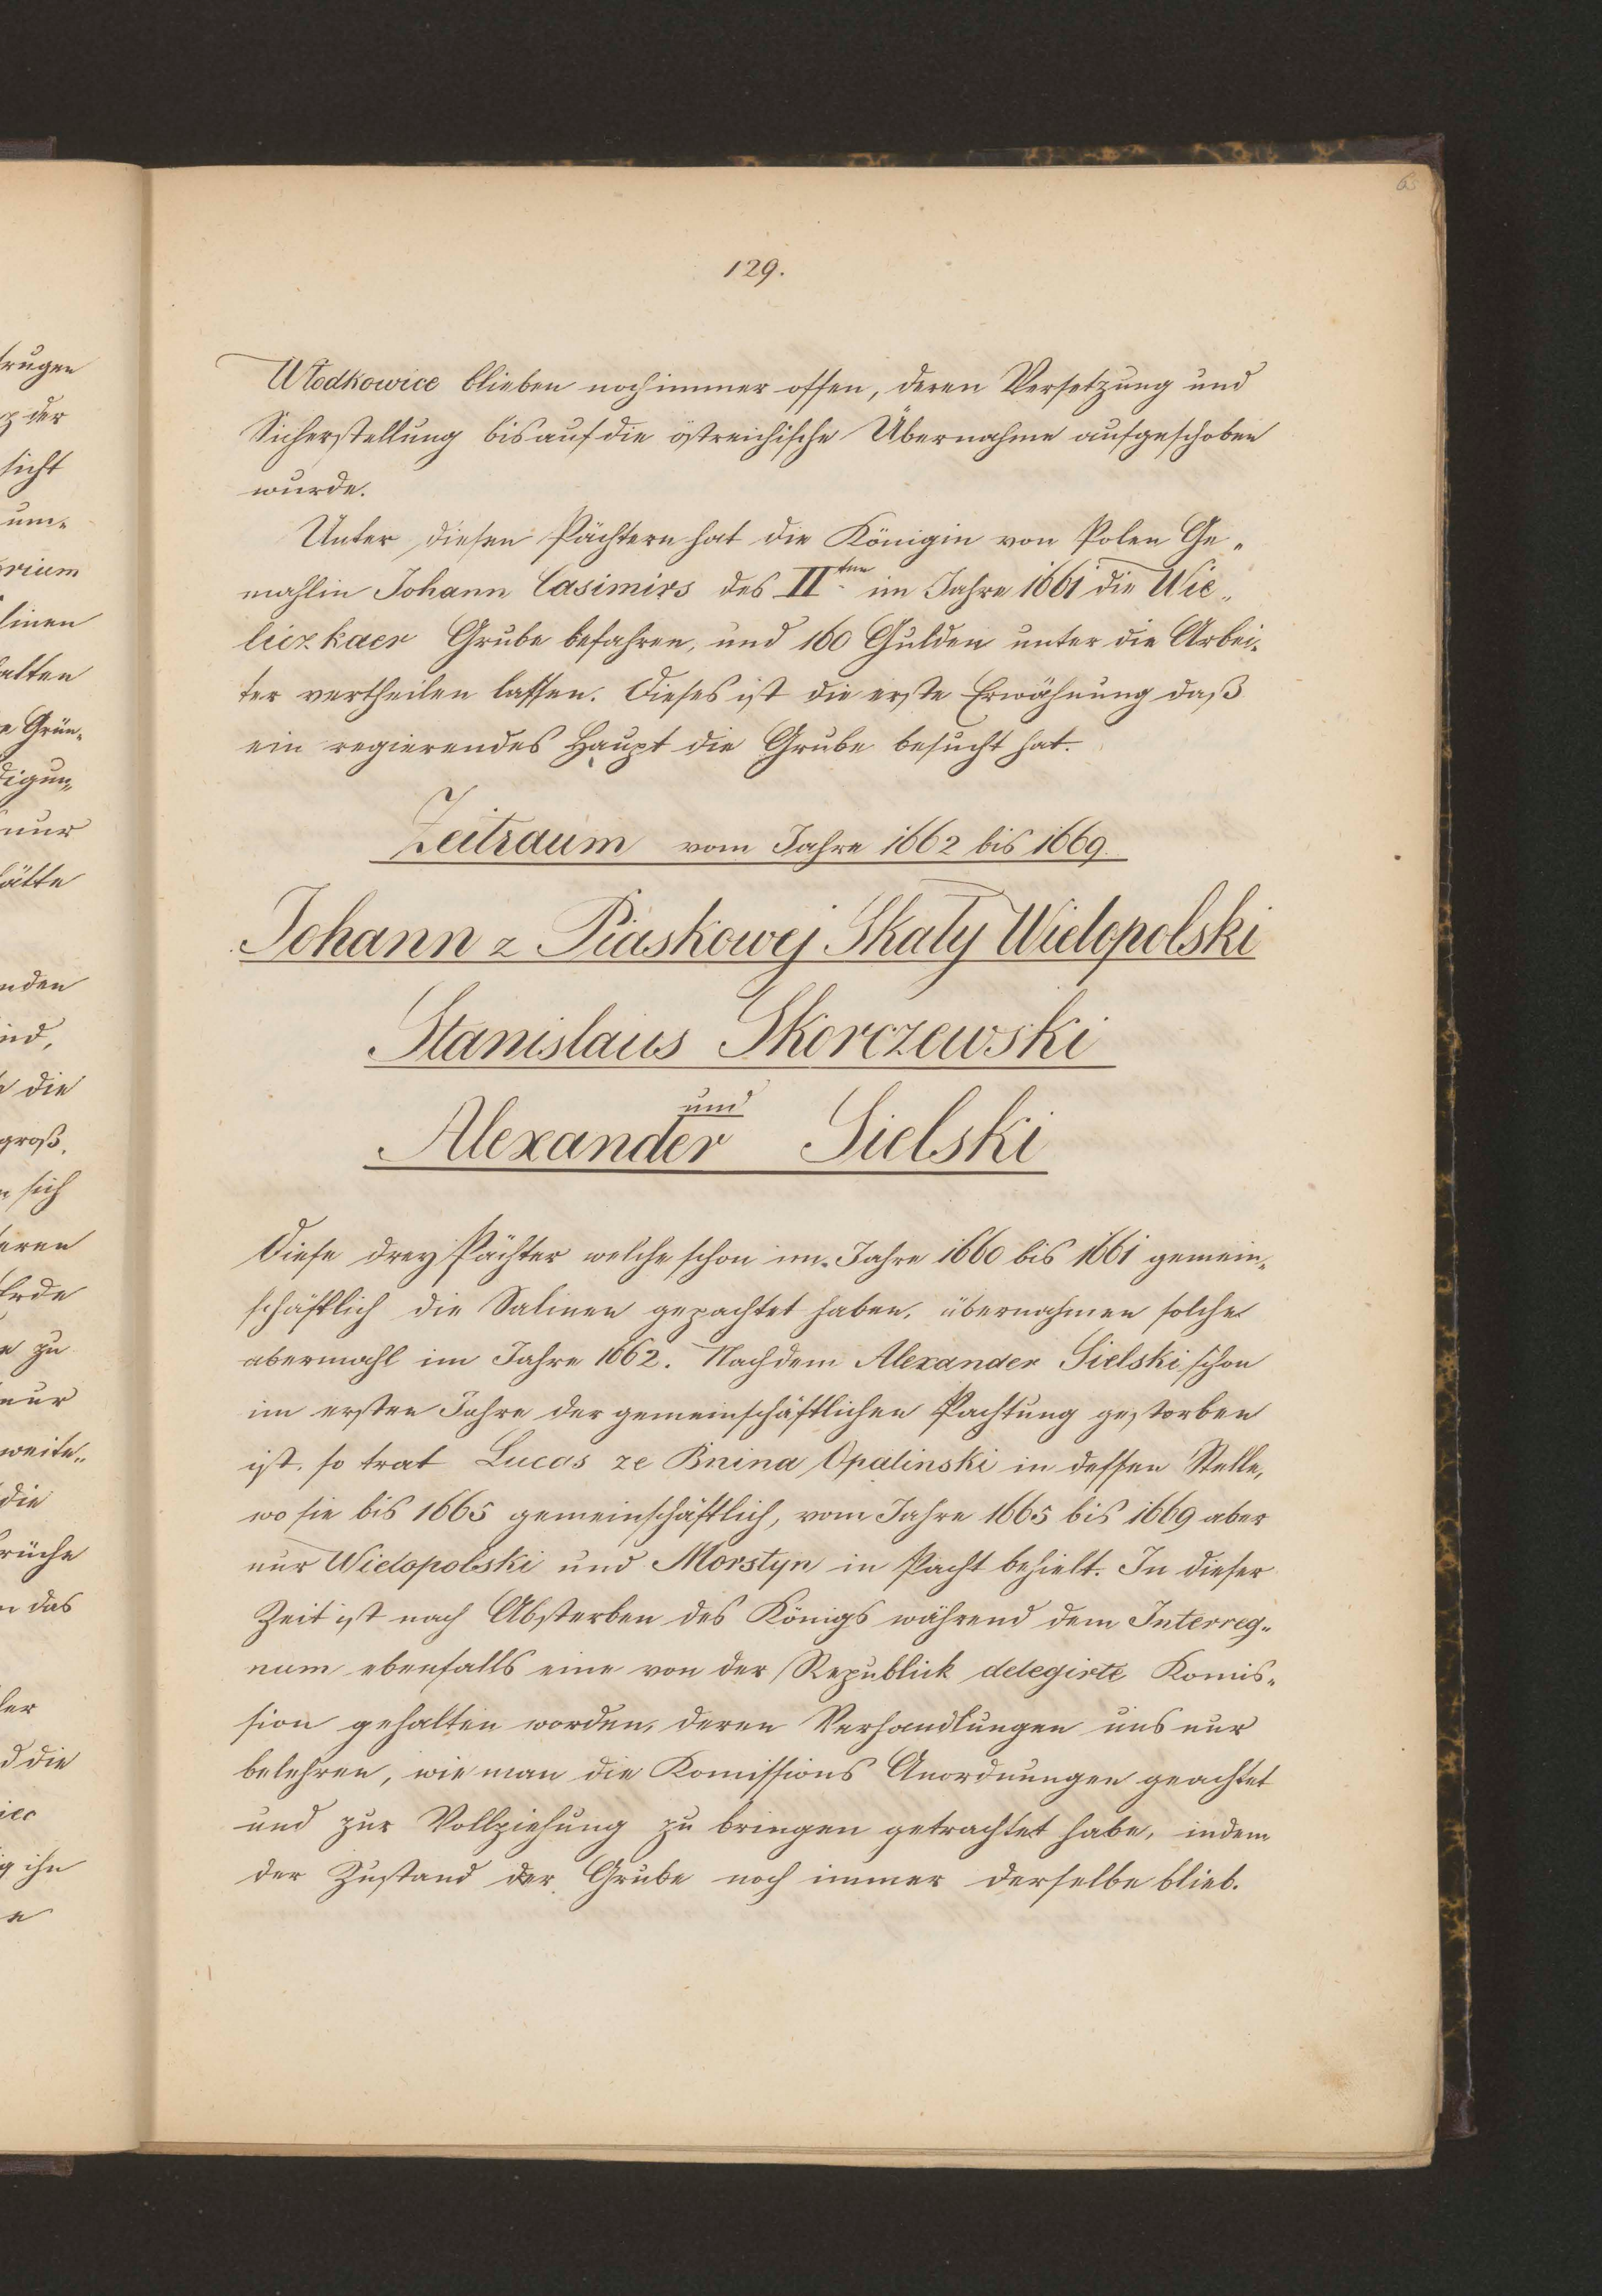 129.
Wlodkowice blieben noch immer offen, deren Versetzung und
Sicherstellung bis auf die östreichische Übernahme aufgeschoben
wurde.
Unter diesen Pächtern hat die Königin von Polen Ge„
mahlin Johann Casimirs des II.ten im Jahre 1661 die Wie„
liczkaer Grube befahren, und 160 Gulden unter die Arbei„
ter vertheilen lassen. Dieses ist die erste Erwähnung daß
ein regierendes Haupt die Grube besucht hat.
Zeitraum vom Jahre 1662 bis 1669.
Johann z Piaskowej Skaly Wielopolski
Stanislaus Skorczewski
und
Alexander Sielski
Diese drey Pächter welche schon im Jahre 1660 bis 1661 gemein„
schäftlich die Salinen gepachtet haben, übernahmen solche
abermahl im Jahre 1662. Nachdem Alexander Sielski schon
im ersten Jahre der gemeinschäftlichen Pachtung gestorben
ist, so trat Lucas ze Bnina Opalinski in dessen Stelle,
wo sie bis 1665 gemeinschäftlich, vom Jahre 1665 bis 1669 aber
nur Wielopolski und Morstyn in Pacht behielt. In dieser
Zeit ist nach Absterben des Königs während dem Interreg„
num ebenfalls eine von der Republick delegirte Komis„
sion gehalten worden, deren Verhandlungen uns nur
belehren, wie man die Komissions Anordnungen geachtet
und zur Vollziehung zu bringen getrachtet habe, indem
der Zustand der Grube noch immer derselbe blieb.